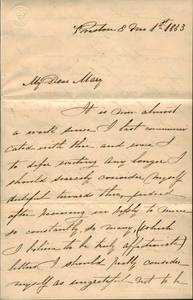 8 mo 1st 1863
My Dear Mary
It is now almost
a week since I last commun
icated with thee and were I
to defer writing any longer I
should scarcely consider myself
dutiful towards thee,
often receiving in reply to mine
so constantly, so many (which
I believe to be truly affectionate)
letters I should justly consider
myself as ungrateful not to be